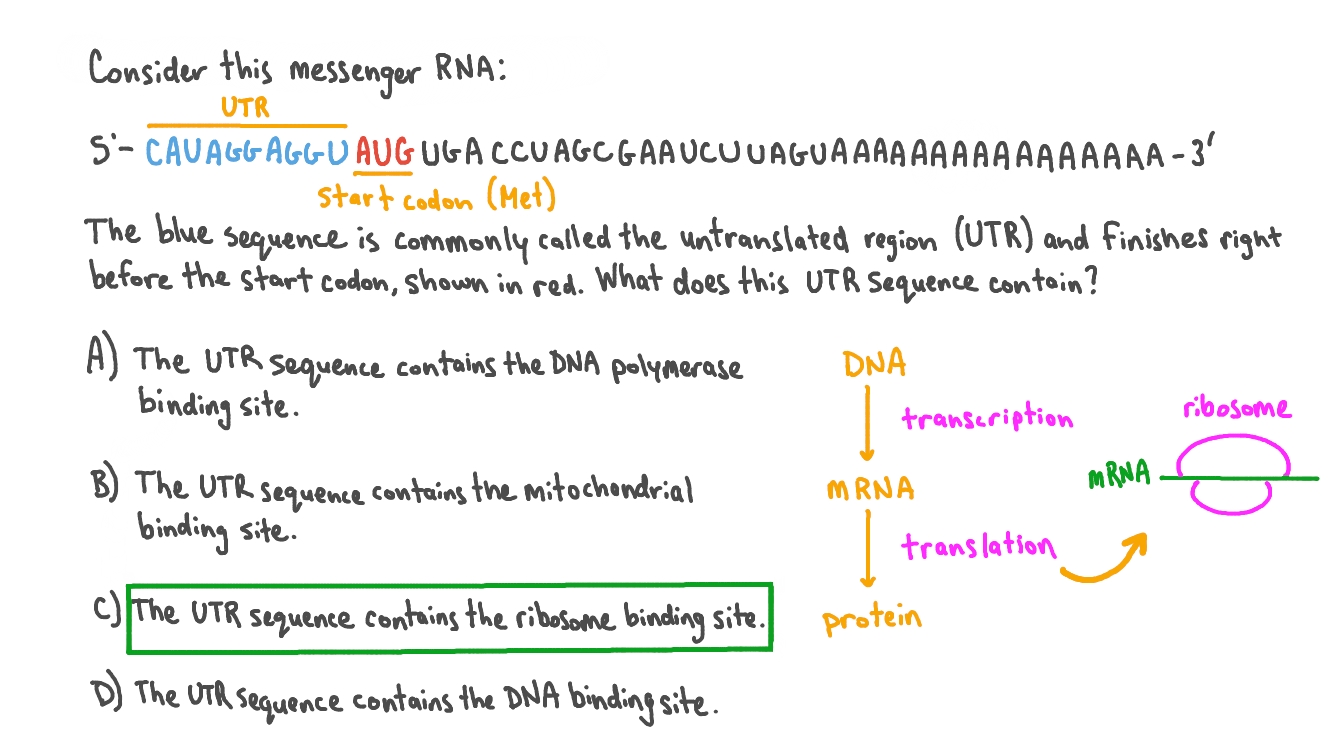 Consider this messenger RNA:
UTR
5'- CAUAGGAGGU AUG UGA CCU AGCGAAUCUUAGUAAAAAAAAAAAAAAAAA - 3'
Start codon (Met)
The blue sequence is commonly called the untranslated region (UTR) and finishes right
before the start codon, shown in red. What does this UTR sequence contain?
A) The UTR sequence contains the DNA polymerase
binding site.
B) The UTR sequence contains the mitochondrial
binding site.
C) The UTR sequence contains the ribosome binding site.
D) The UTR sequence contains the DNA binding site.
DNA
transcription
mRNA
translation
protein
ribosome
mRNA